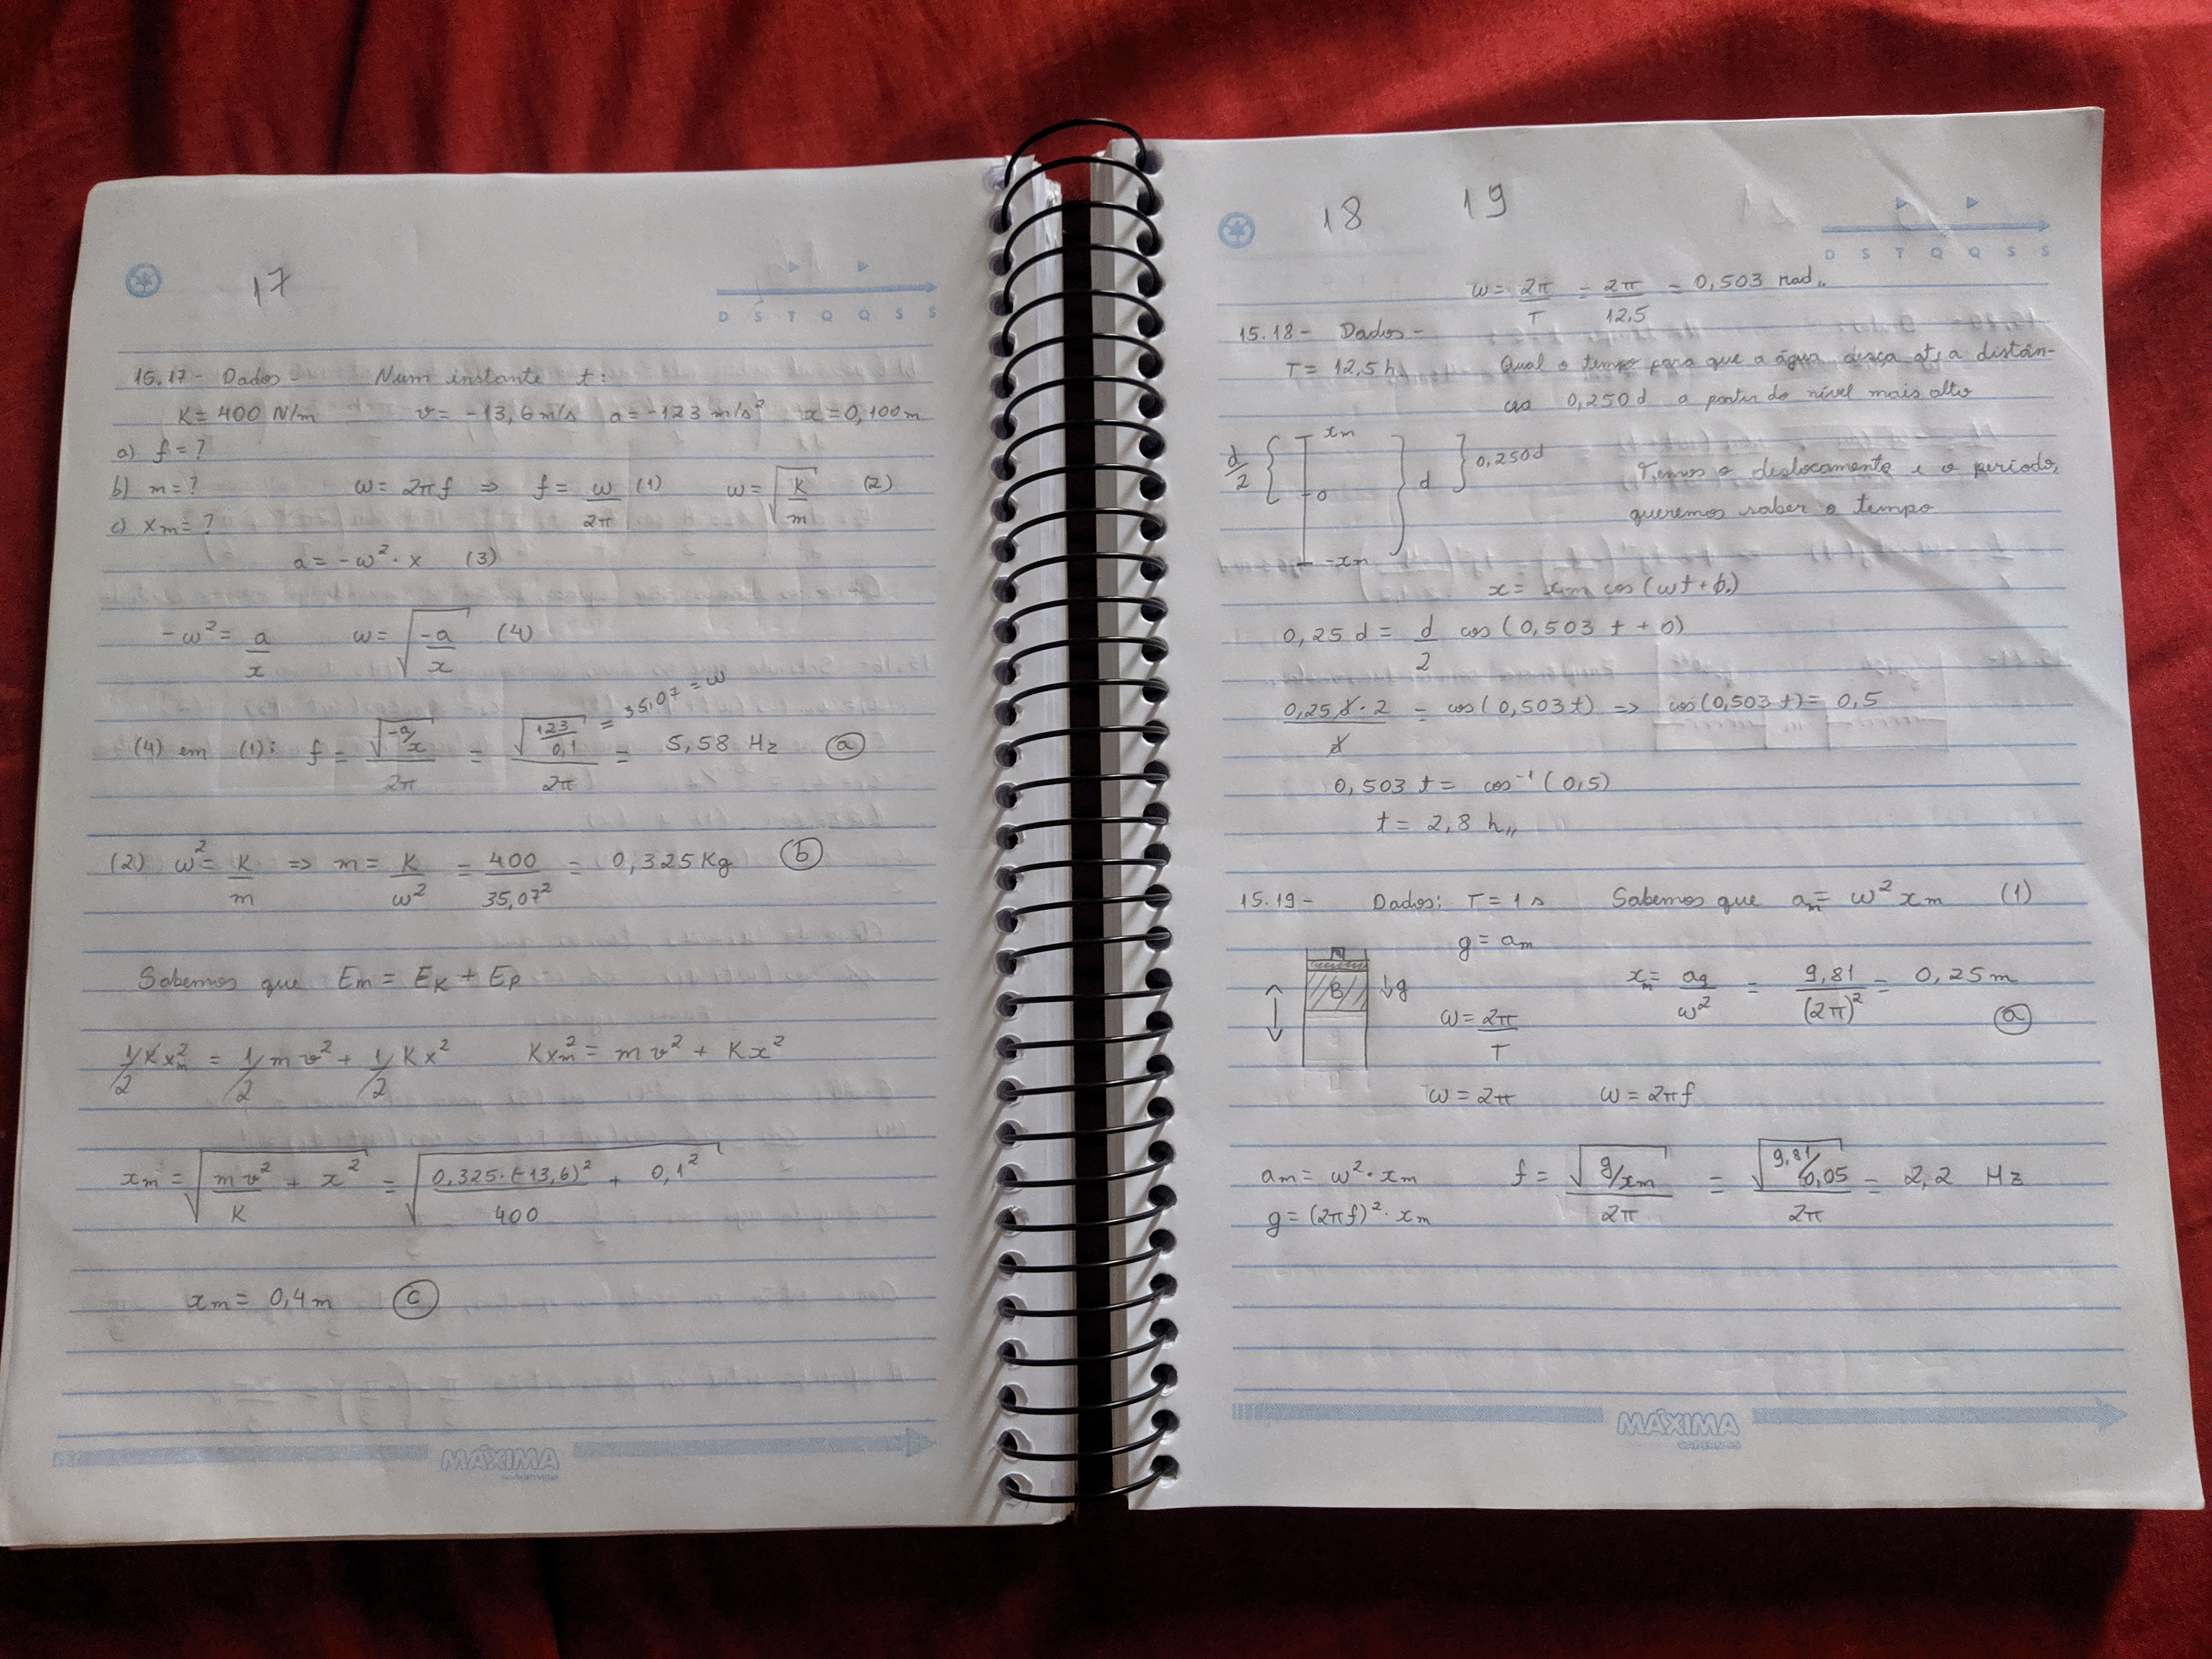 17
D S T Q Q S S
15.17 - Dados - Num instante t:
K = 400 N/m v = -13,6 m/s a = -123 m/s² x = 0,100 m
a) f = ?
b) m = ? ω = 2πf ⇒ f = ω/2π (1) ω = √(k/m) (2)
c) xm = ?
a = -ω² · x (3)
-ω² = a/x ω = √(-a/x) (4)
(4) em (1): f = √(-a/x)/2π = √(123/0,1)/2π = 5,58 Hz (a)
= 35,07 = ω
(2) ω² = k/m ⇒ m = k/ω² = 400/35,07² = 0,325 Kg (b)
Sabemos que Em = Ek + Ep
1/2 K xm² = 1/2 m v² + 1/2 K x² K xm² = m v² + K x²
xm = √(m v²/K + x²) = √(0,325·(-13,6)²/400 + 0,1²)
xm = 0,4 m (c)
MÁXIMA
18 19
D S T Q Q S S
ω = 2π/T = 2π/12,5 = 0,503 rad,,
15.18 - Dados -
T = 12,5 h Qual o tempo para que a água desça até a distân-
cia 0,250 d a partir do nível mais alto
d/2 xm 0 -xm d 0,250d
Temos o deslocamento e o período,
queremos saber o tempo
x = xm cos (ωt + ϕ)
0,25 d = d/2 cos (0,503 t + 0)
0,25 d · 2/d = cos (0,503 t) ⇒ cos (0,503 t) = 0,5
0,503 t = cos⁻¹ (0,5)
t = 2,8 h,,
15.19 - Dados: T = 1 s Sabemos que am = ω² xm (1)
g = am
B g
ω = 2π/T xm = ag/ω² = 9,81/(2π)² = 0,25 m (a)
ω = 2π ω = 2πf
am = ω² · xm f = √(g/xm)/2π = √(9,81/0,05)/2π = 2,2 Hz
g = (2πf)² · xm
MÁXIMA